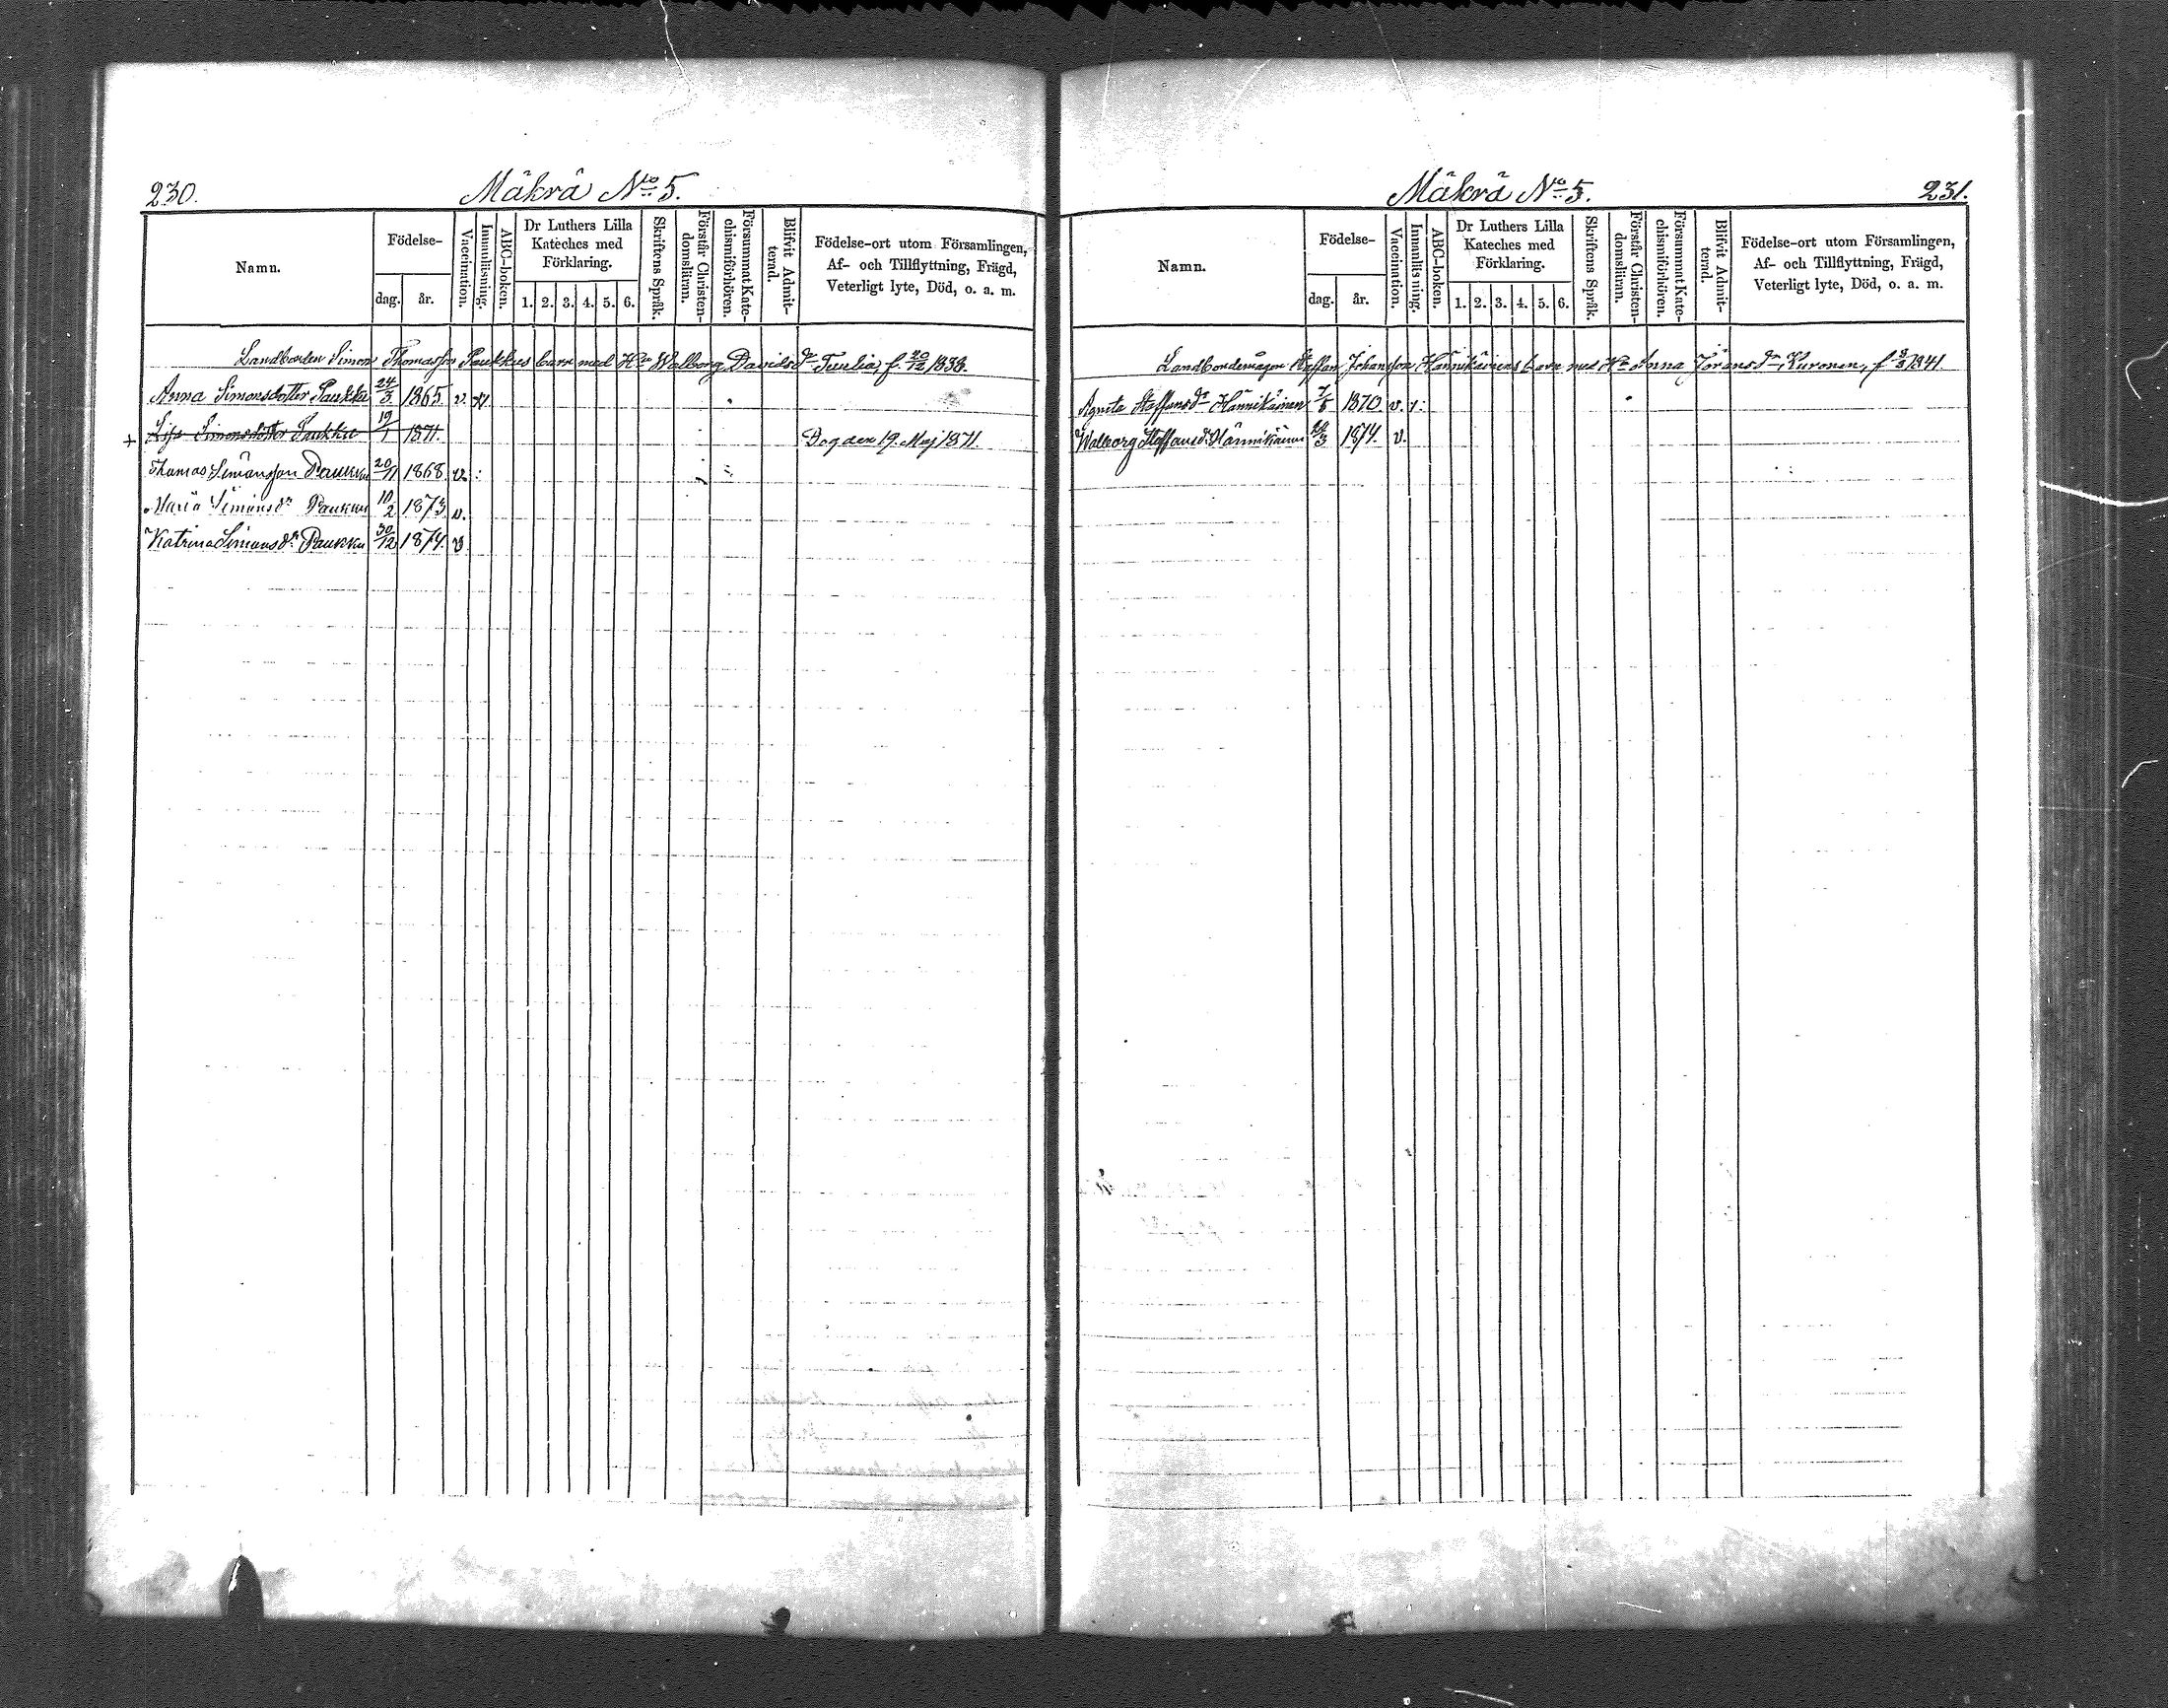 230.
Mäkrä No 5.
Namn.
Födelse-
dag.
år.
Vaccination.
Innanläsning.
ABC-boken.
Dr Luthers Lilla
Kateches med
Förklaring.
1. 2. 3. 4. 5. 6.
Skriftens Språk.
Förstår Christen-
domsläran.
Försummat Kate-
chismiförhören.
Blifvit Admit-
terad.
Födelse-ort utom Församlingen,
Af- och Tillflyttning, Frägd,
Veterligt lyte, Död, o. a. m.
Landbonden Simon Thomasson Paukkus barn med Hu Walborg Davidsdr Turkia, f. 20/12 1836.
Anna Simonsdotter Paukku 24/3 1865. v.
+ Lisa Simonsdotter Paukku 19/1 1871. Dog den 19. Maj 1871.
Thomas Simonsson Paukku 20/11 1868. v. :
Maria Simonsdr Paukku 10/2 1873. v.
Katrina Simonsdr Paukku 30/12 1874. v
Mäkrä No 5.
231.
Namn.
Födelse-
dag.
år.
Vaccination.
Innanläsning.
ABC-boken.
Dr Luthers Lilla
Kateches med
Förklaring.
1. 2. 3. 4. 5. 6.
Skriftens Språk.
Förstår Christen-
domsläran.
Försummat Kate-
chismiförhören.
Blifvit Admit-
terad.
Födelse-ort utom Församlingen,
Af- och Tillflyttning, Frägd,
Veterligt lyte, Död, o. a. m.
Landbondemågen Staffan Johansson Hännikäinens barn med Hu Anna Jöransdr Kuronen, f. 3/3 1841.
Agneta Staffansdr Hännikäinen 7/5 1870. v.
Walborg Staffansdr Hännikäinen 1874. v.